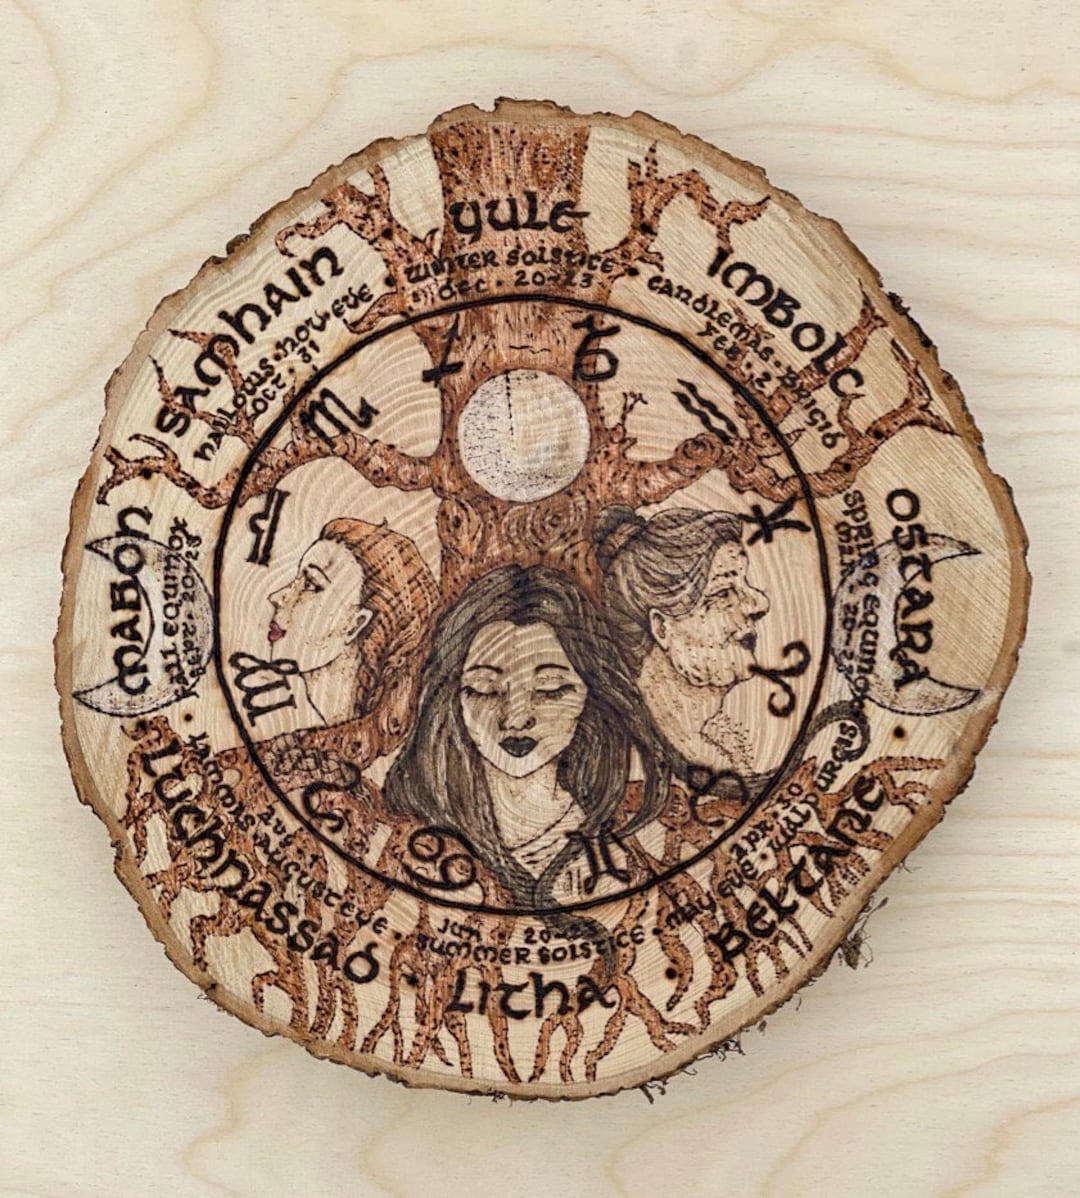 YULE
WINTER SOLSTICE
DEC. 20-23
IMBOLC
CANDLEMAS·BRIGID
FEB. 2
OSTARA
SPRING EQUINOX
MAR. 20-23
BELTANE
MAY EVE·WALPURGIS
APR. 30
LITHA
SUMMER SOLSTICE
JUN. 20-23
LUGHNASSAD
LAMMAS·AUGUST EVE
AUG. 1
MABON
FALL EQUINOX
SEPT. 20-23
SAMHAIN
HALLOWS·NOV·EVE
OCT. 31